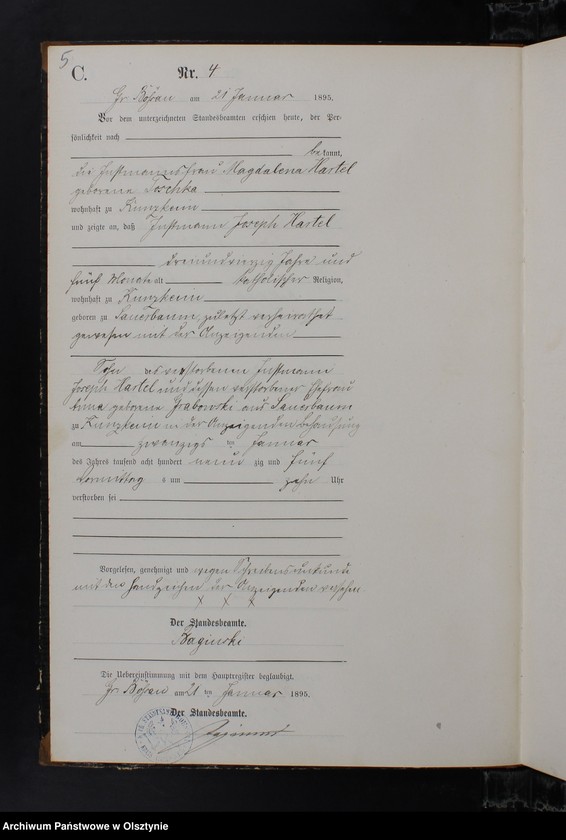 5
C.
Nr. 4
Gr. Bößau am 21 Januar 1895.
Vor dem unterzeichneten Standesbeamten erschien heute, der Per-
sönlichkeit nach
bekannt,
die Instmannsfrau Magdalena Hartel
geborene Toschka
wohnhaft zu Kunzkeim
und zeigte an, daß Instmann Joseph Hartel
dreiundvierzig Jahre und
fünf Monate alt katholischer Religion,
wohnhaft zu Kunzkeim
geboren zu Lauerbaum, zuletzt verheirathet
gewesen mit der Anzeigenden
Sohn des verstorbenen Instmann
Joseph Hartel und dessen verstorbener Ehefrau
Anna geborene Grabowski aus Lauerbaum
zu Kunzkeim in der Anzeigenden Behausung
am zwanzigs ten Januar
des Jahres tausend acht hundert neun zig und fünf
Vormittag s um zehn Uhr
verstorben sei
Vorgelesen, genehmigt und wegen Schreibensunkunde
mit den Handzeichen der Anzeigenden versehen
x x x
Der Standesbeamte.
Baginski
Die Uebereinstimmung mit dem Hauptregister beglaubigt.
Gr. Bößau am 21 ten Januar 1895.
Der Standesbeamte.
Archiwum Państwowe w Olsztynie